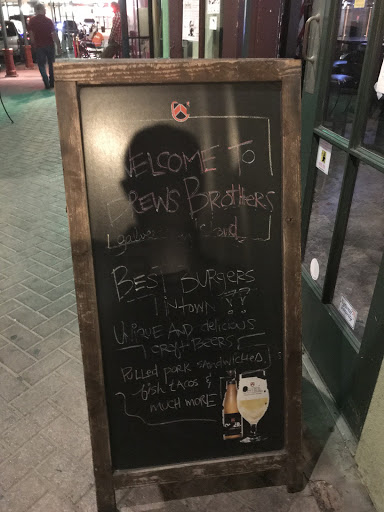 WELCOME TO
BREWS BROTHERS
BEST BURGERS
IN TOWN !!
UNIQUE AND delicious
craft BEERS
Pulled pork sandwiches
fish tacos &
MUCH MORE